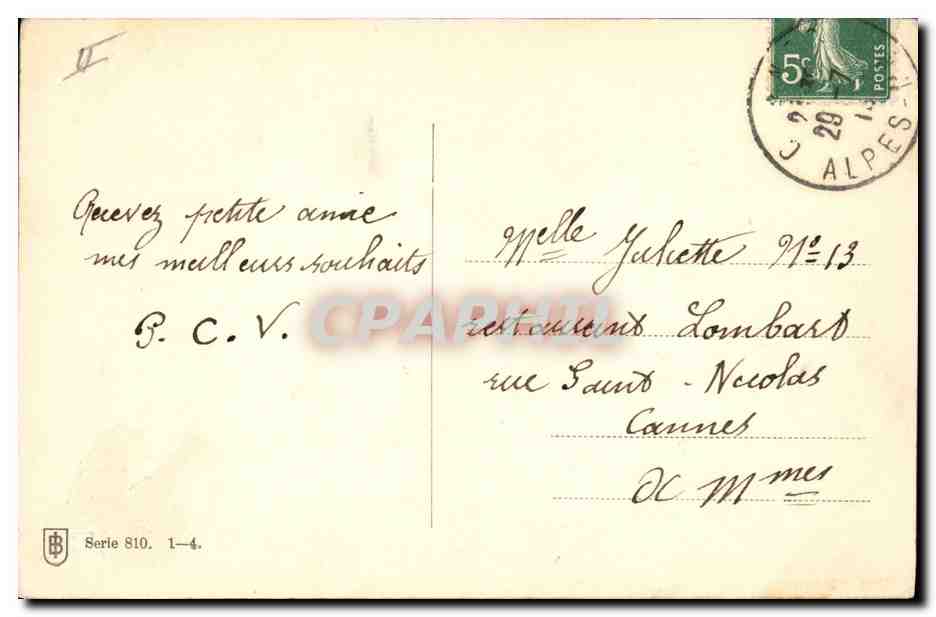 5c
POSTES
29 -7
ALPES-
Recevez petite amie
mes meilleurs souhaits
P. C. V.
Melle Juliette No 13
restaurant Lombart
rue Saint-Nicolas
Cannes
Mmes
CPAPHIL
Serie 810. 1—4.